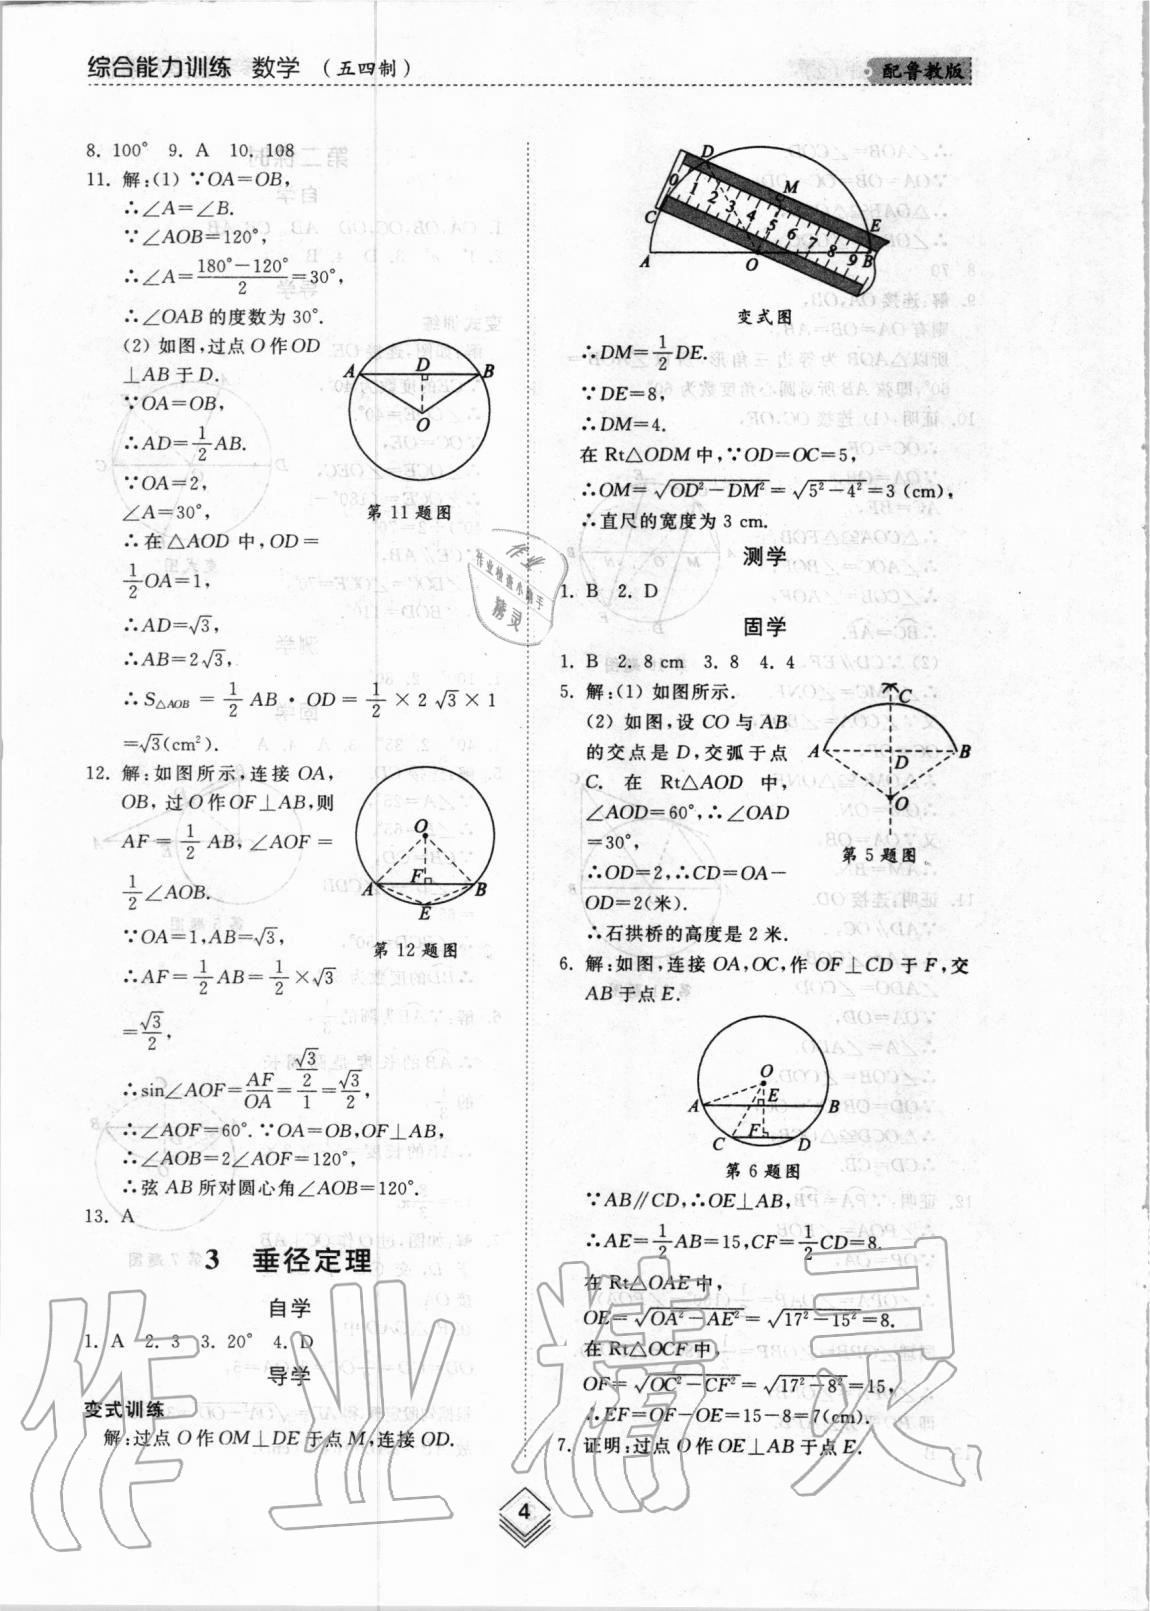 综合能力训练 数学 (五四制)
配鲁教版
8. 100° 9. A 10. 108
11. 解:(1) ∵OA=OB,
∴∠A=∠B.
∵∠AOB=120°,
∴∠A=\frac{180°-120°}{2}=30°,
∴∠OAB 的度数为 30°.
(2) 如图,过点 O 作 OD
⊥AB 于 D.
∵OA=OB,
∴AD=\frac{1}{2}AB.
∵OA=2,
∠A=30°,
∴在△AOD 中,OD=
\frac{1}{2}OA=1,
∴AD=√3,
∴AB=2√3,
∴S△AOB = \frac{1}{2} AB·OD = \frac{1}{2}×2√3×1
=√3(cm²).
A D B
O
第 11 题图
12. 解:如图所示,连接 OA,
OB, 过 O 作 OF⊥AB,则
AF = \frac{1}{2} AB, ∠AOF =
\frac{1}{2}∠AOB.
∵OA=1,AB=√3,
∴AF=\frac{1}{2}AB=\frac{1}{2}×√3
=\frac{√3}{2},
O
A F B
E
第 12 题图
∴sin∠AOF=\frac{AF}{OA}=\frac{\frac{√3}{2}}{1}=\frac{√3}{2},
∴∠AOF=60°.∵OA=OB,OF⊥AB,
∴∠AOB=2∠AOF=120°,
∴弦 AB 所对圆心角∠AOB=120°.
13. A
3 垂径定理
自学
1. A 2. 3 3. 20° 4. D
导学
变式训练
解:过点 O 作 OM⊥DE 于点 M,连接 OD.
D M E
C
0 1 2 3 4 5 6 7 8 9
A O B
变式图
∴DM=\frac{1}{2}DE.
∵DE=8,
∴DM=4.
在 Rt△ODM 中,∵OD=OC=5,
∴OM=√(OD²-DM²)=√(5²-4²)=3 (cm),
∴直尺的宽度为 3 cm.
测学
1. B 2. D
固学
1. B 2. 8 cm 3. 8 4. 4
5. 解:(1) 如图所示.
(2) 如图,设 CO 与 AB
的交点是 D,交弧于点
C. 在 Rt△AOD 中,
∠AOD=60°,∴∠OAD
=30°,
∴OD=2,∴CD=OA-
OD=2(米).
∴石拱桥的高度是 2 米.
C
A D B
O
第 5 题图
6. 解:如图,连接 OA,OC,作 OF⊥CD 于 F,交
AB 于点 E.
O
A E B
C F D
第 6 题图
∵AB∥CD,∴OE⊥AB,
∴AE=\frac{1}{2}AB=15,CF=\frac{1}{2}CD=8.
在 Rt△OAE 中,
OE=√(OA²-AE²)=√(17²-15²)=8.
在 Rt△OCF 中,
OF=√(OC²-CF²)=√(17²-8²)=15,
∴EF=OF-OE=15-8=7(cm).
7. 证明:过点 O 作 OE⊥AB 于点 E.
4
作业精灵
作业
作业检查小助手
精灵